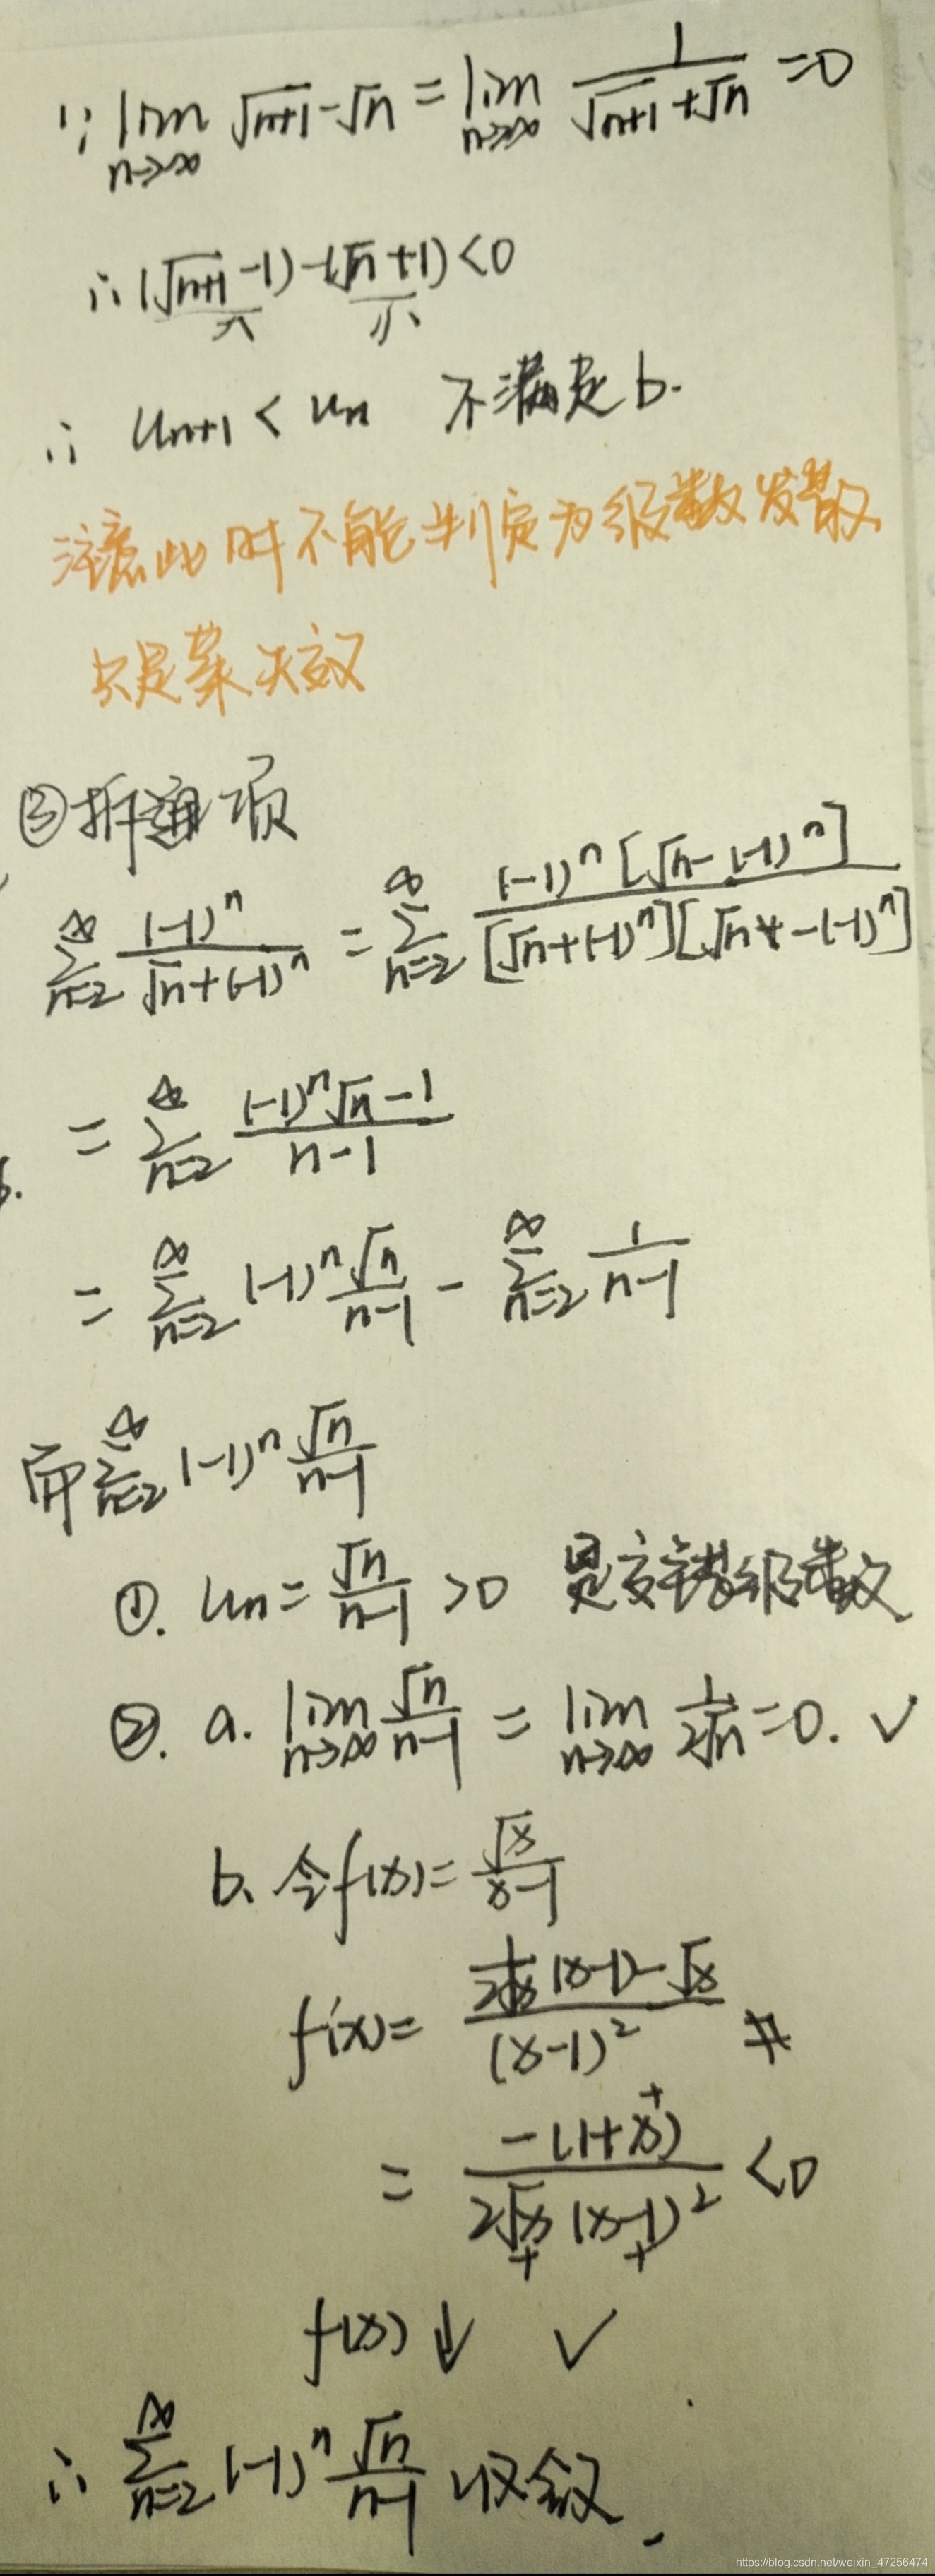 ∵ lim n→∞ √(n+1) - √n = lim n→∞ 1/(√(n+1) + √n) = 0
∴ (√(n+1) - 1) - (√n + 1) < 0
∴ u_{n+1} < u_n 不满足 b.
注意此时不能判定为级数发散
只是莱失效
③拆通项
∑_{n=2}^{∞} (-1)^n/(√n+(-1)^n) = ∑_{n=2}^{∞} (-1)^n[√n-(-1)^n]/([√n+(-1)^n][√n-(-1)^n])
= ∑_{n=2}^{∞} ((-1)^n√n-1)/(n-1)
= ∑_{n=2}^{∞} (-1)^n √n/(n-1) - ∑_{n=2}^{∞} 1/(n-1)
而∑_{n=2}^{∞} (-1)^n √n/(n-1)
①. u_n = √n/(n-1) >0 是交错级数
②. a. lim n→∞ √n/(n-1) = lim n→∞ 1/(2√n) = 0. ✓
b. 令f(x)= √x/(x-1)
f'(x)= (1/(2√x)(x-1)-√x)/(x-1)²
= -(1+x)/(2√x(x-1)²) <0
f(x)↓ ✓
∴ ∑_{n=2}^{∞} (-1)^n √n/(n-1) 收敛.
https://blog.csdn.net/weixin_47256474